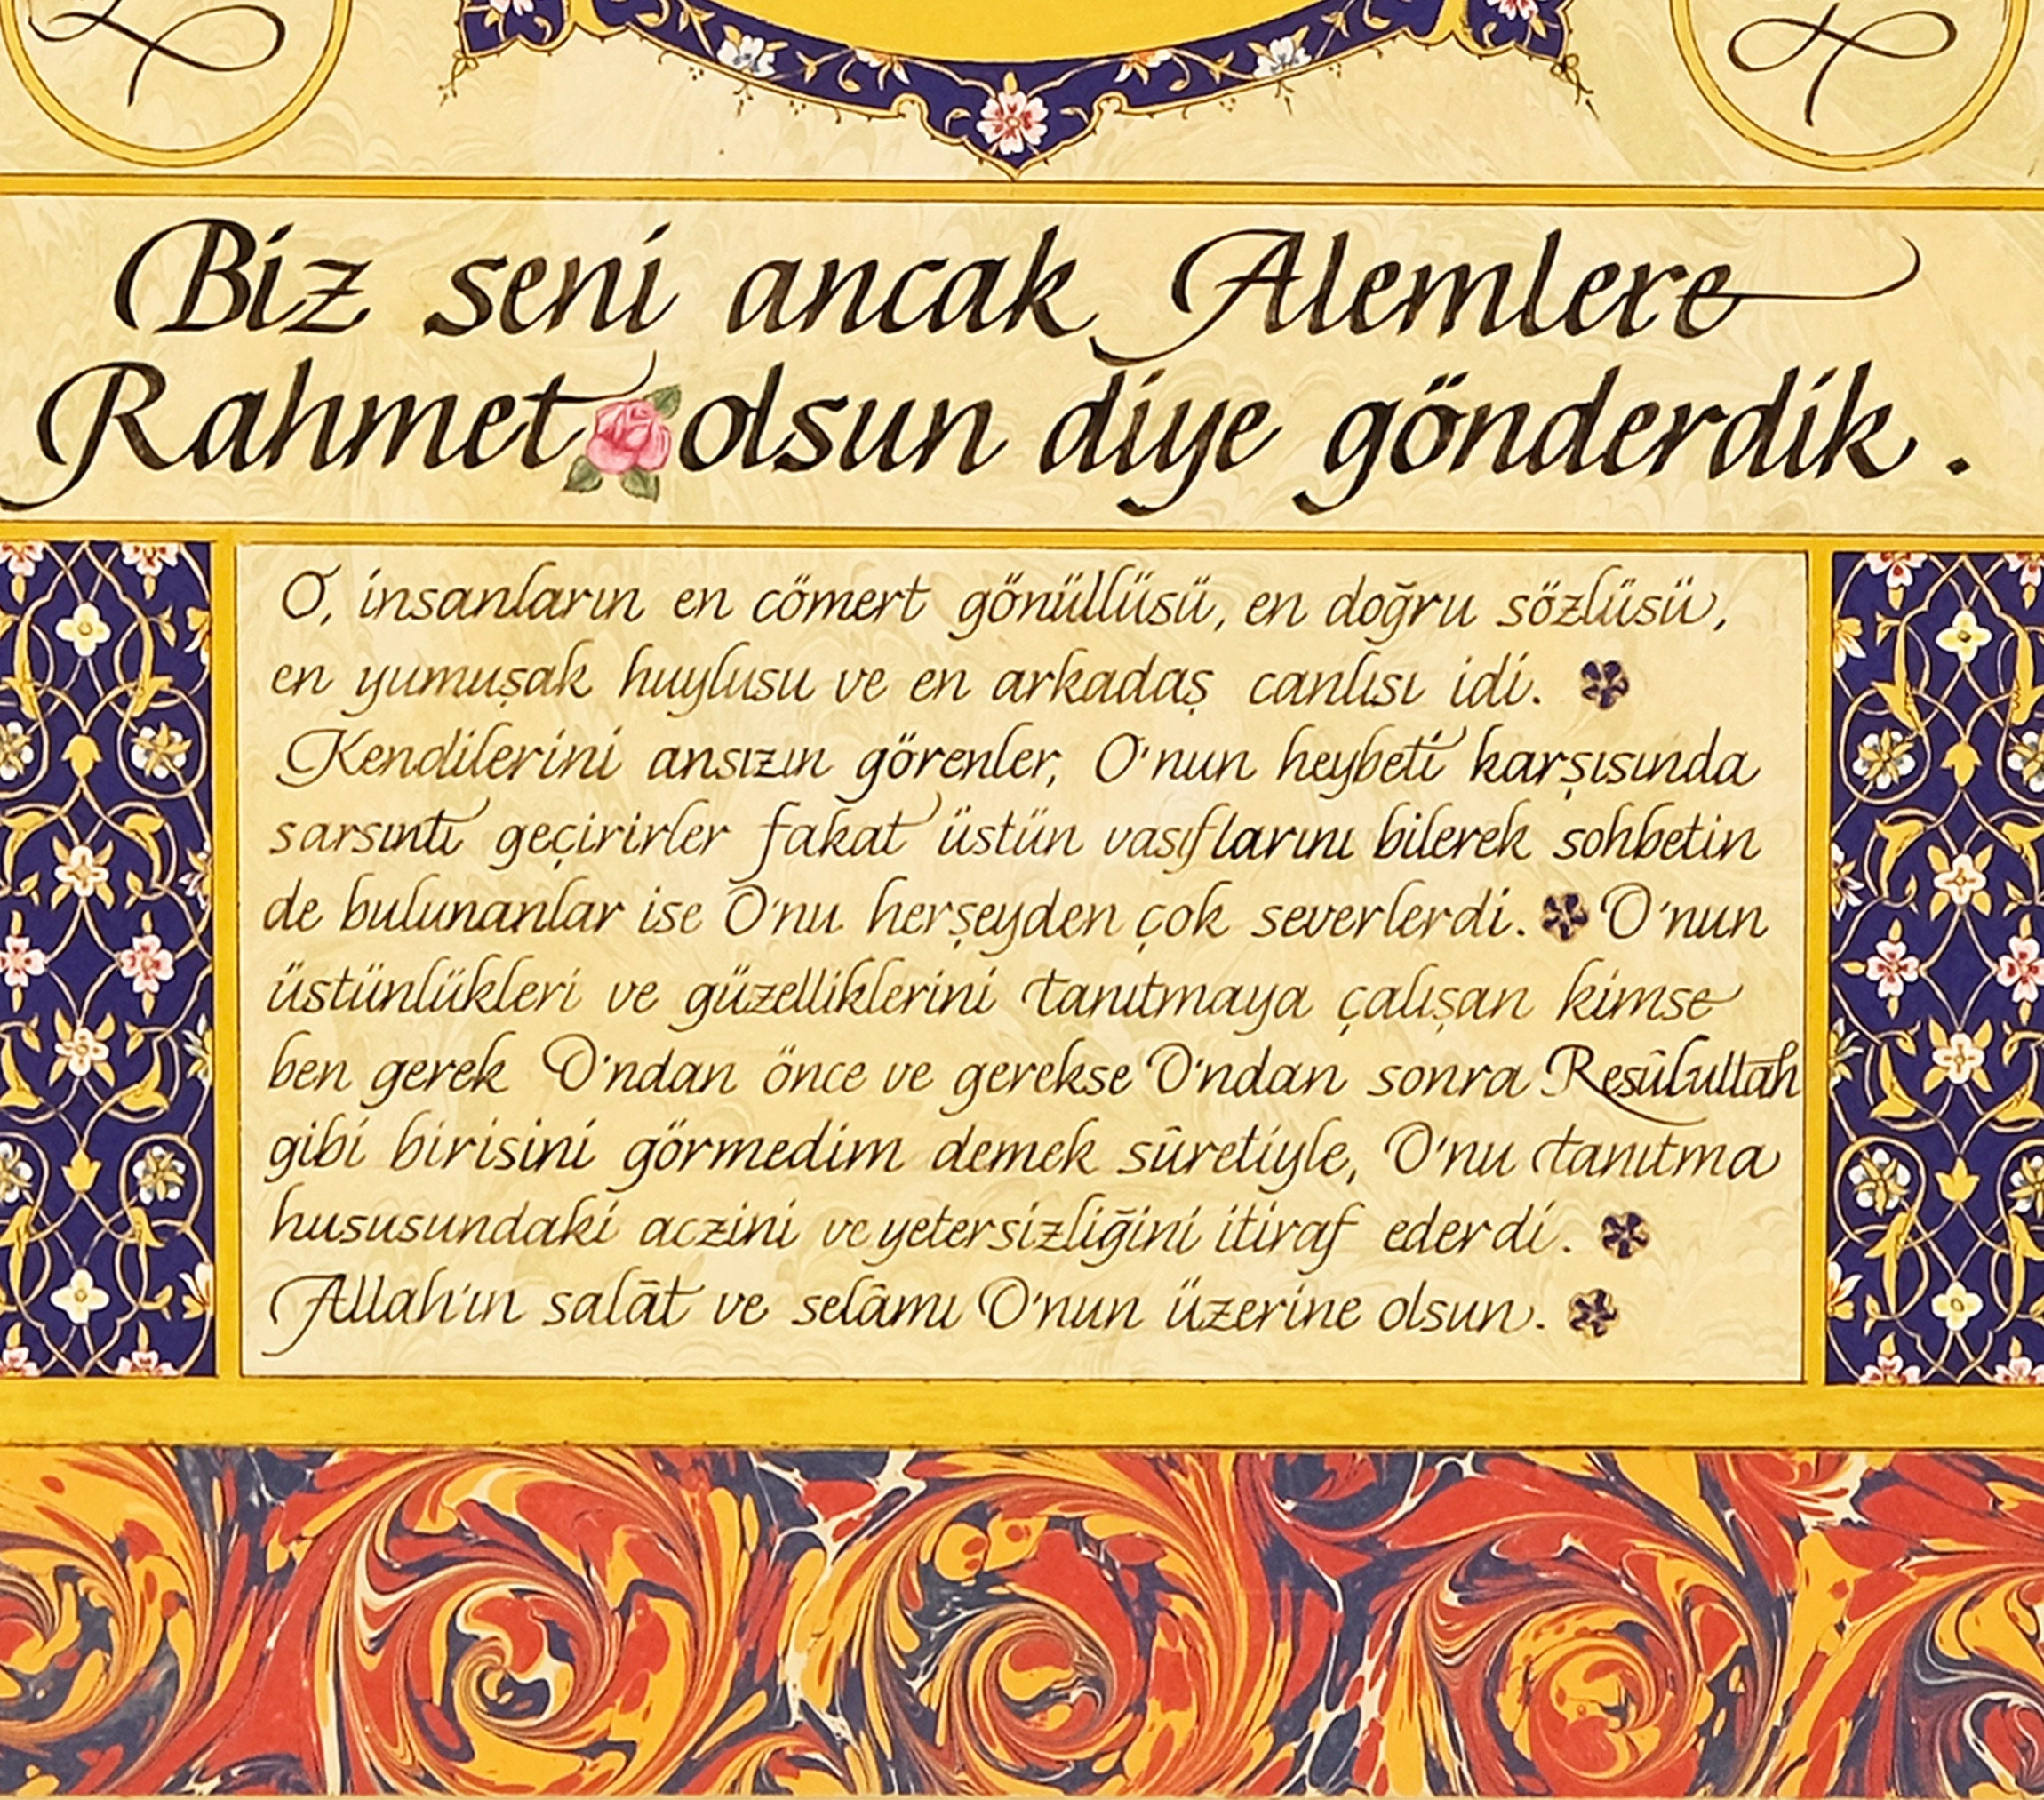 Biz seni ancak Alemlere
Rahmet olsun diye gönderdik.
O, insanların en cömert gönüllüsü, en doğru sözlüsü,
en yumuşak huylusu ve en arkadaş canlısı idi.
Kendilerini ansızın görenler, O'nun heybeti karşısında
sarsıntı geçirirler fakat üstün vasıflarını bilerek sohbetin
de bulunanlar ise O'nu herşeyden çok severlerdi. O'nun
üstünlükleri ve güzelliklerini tanıtmaya çalışan kimse
ben gerek O'ndan önce ve gerekse O'ndan sonra Resûlullah
gibi birisini görmedim demek sûretiyle, O'nu tanıtma
hususundaki aczini ve yetersizliğini itiraf ederdi.
Allah'ın salât ve selâmı O'nun üzerine olsun.